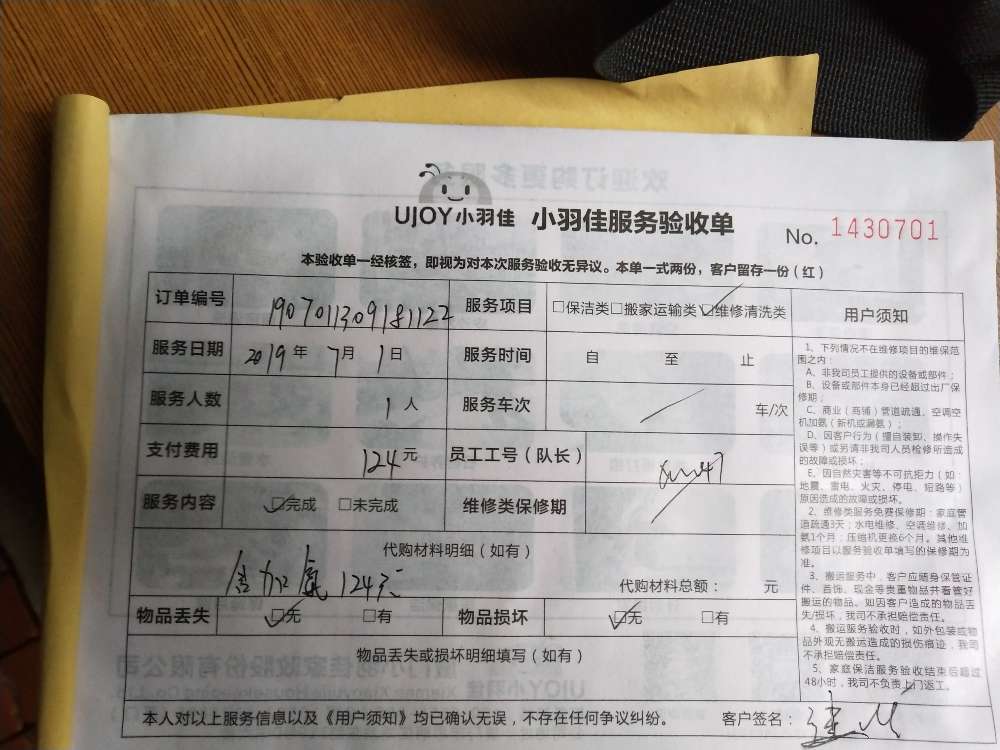 UJOY小羽佳 小羽佳服务验收单 No. 1430701
本验收单一经核签，即视为对本次服务验收无异议。本单一式两份，客户留存一份（红）
订单编号 190701309181122 服务项目 □保洁类□搬家运输类☑维修清洗类
服务日期 2019年7月1日 服务时间 自 至 止
服务人数 1人 服务车次 车/次
支付费用 124元 员工工号（队长）
服务内容 ☑完成 □未完成 维修类保修期
代购材料明细（如有）
加氨 124元 代购材料总额： 元
物品丢失 ☑无 □有 物品损坏 ☑无 □有
物品丢失或损坏明细填写（如有）
本人对以上服务信息以及《用户须知》均已确认无误，不存在任何争议纠纷。 客户签名：
用户须知
1、下列情况不在维修项目的维保范
围之内：
A、非我司员工提供的设备或部件；
B、设备或部件本身已经超过出厂保
修期；
C、商业（商铺）管道疏通、空调空
机加氨（新机或漏氨）；
D、因客户行为（擅自装卸、操作失
误等）或另请非我司人员检修所造成
的故障或损坏；
E、因自然灾害等不可抗拒力（如：
地震、雷电、火灾、停电、短路等）
原因造成的故障或损坏。
2、维修类服务免费保修期：家庭管
道疏通3天；水电维修、空调维修、加
氨1个月；压缩机更换6个月。其他维
修项目以服务验收单填写的保修期为
准。
3、搬运服务中，客户应随身保管证
件、首饰、现金等贵重物品并看管好
搬运的物品。如因客户造成的物品丢
失/损坏，我司不承担赔偿责任。
4、搬运服务验收时，如外包装或物
品外观无搬运造成的损伤痕迹，我司
不承担赔偿责任。
5、家庭保洁服务验收结束后超过
48小时，我司不负责上门返工。